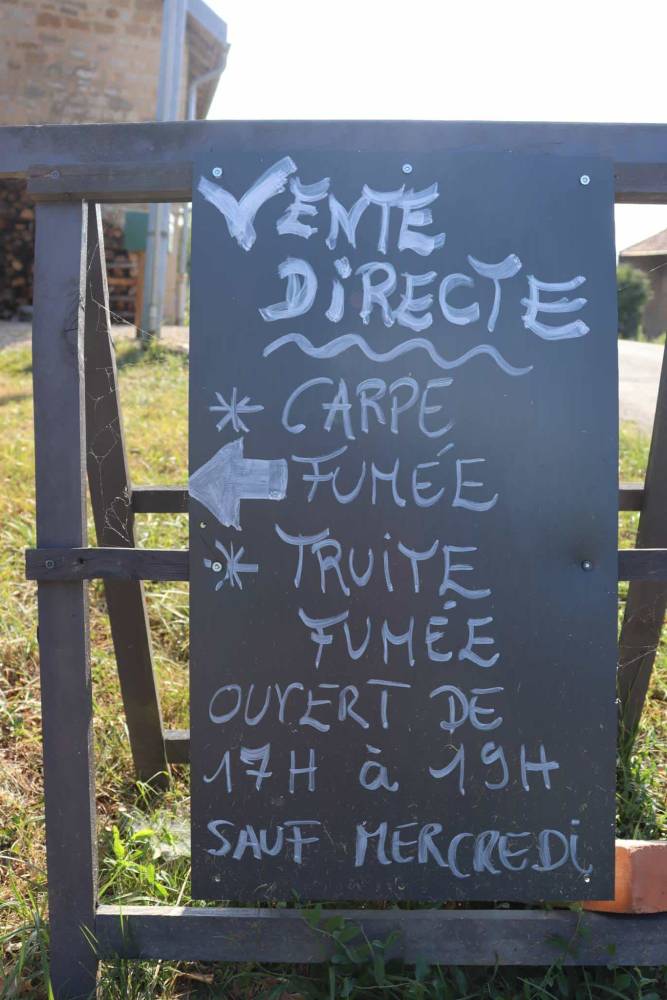 VENTE
DiRECTE
* CARPE
FUMÉE
* TRUITE
FUMÉE
OUVERT DE
17H à 19H
SAUF MERCREDi